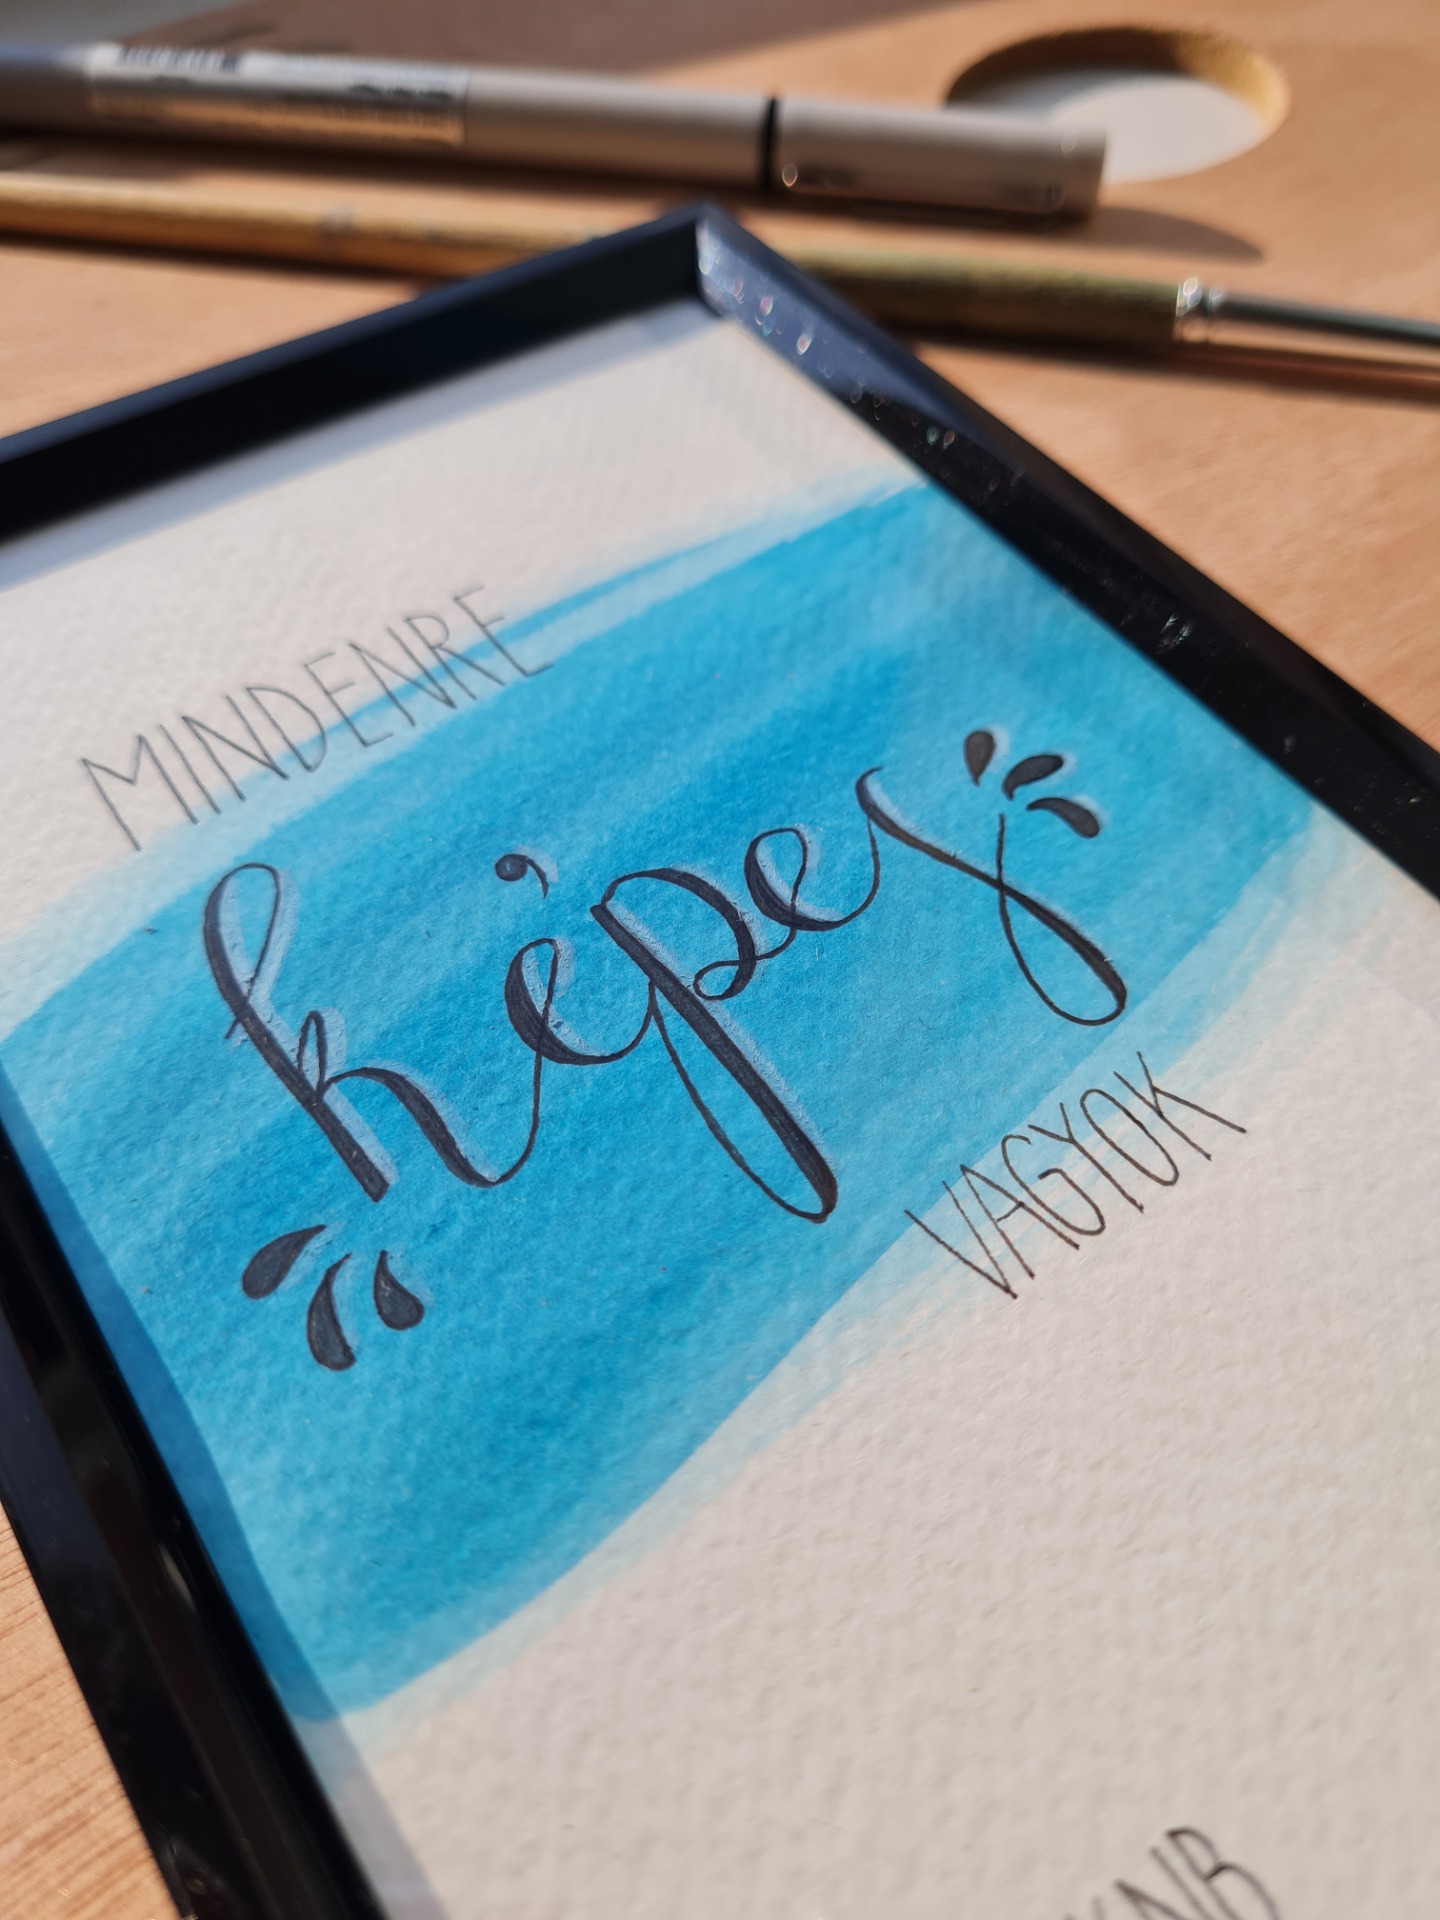 MINDENRE
képes
VAGYOK